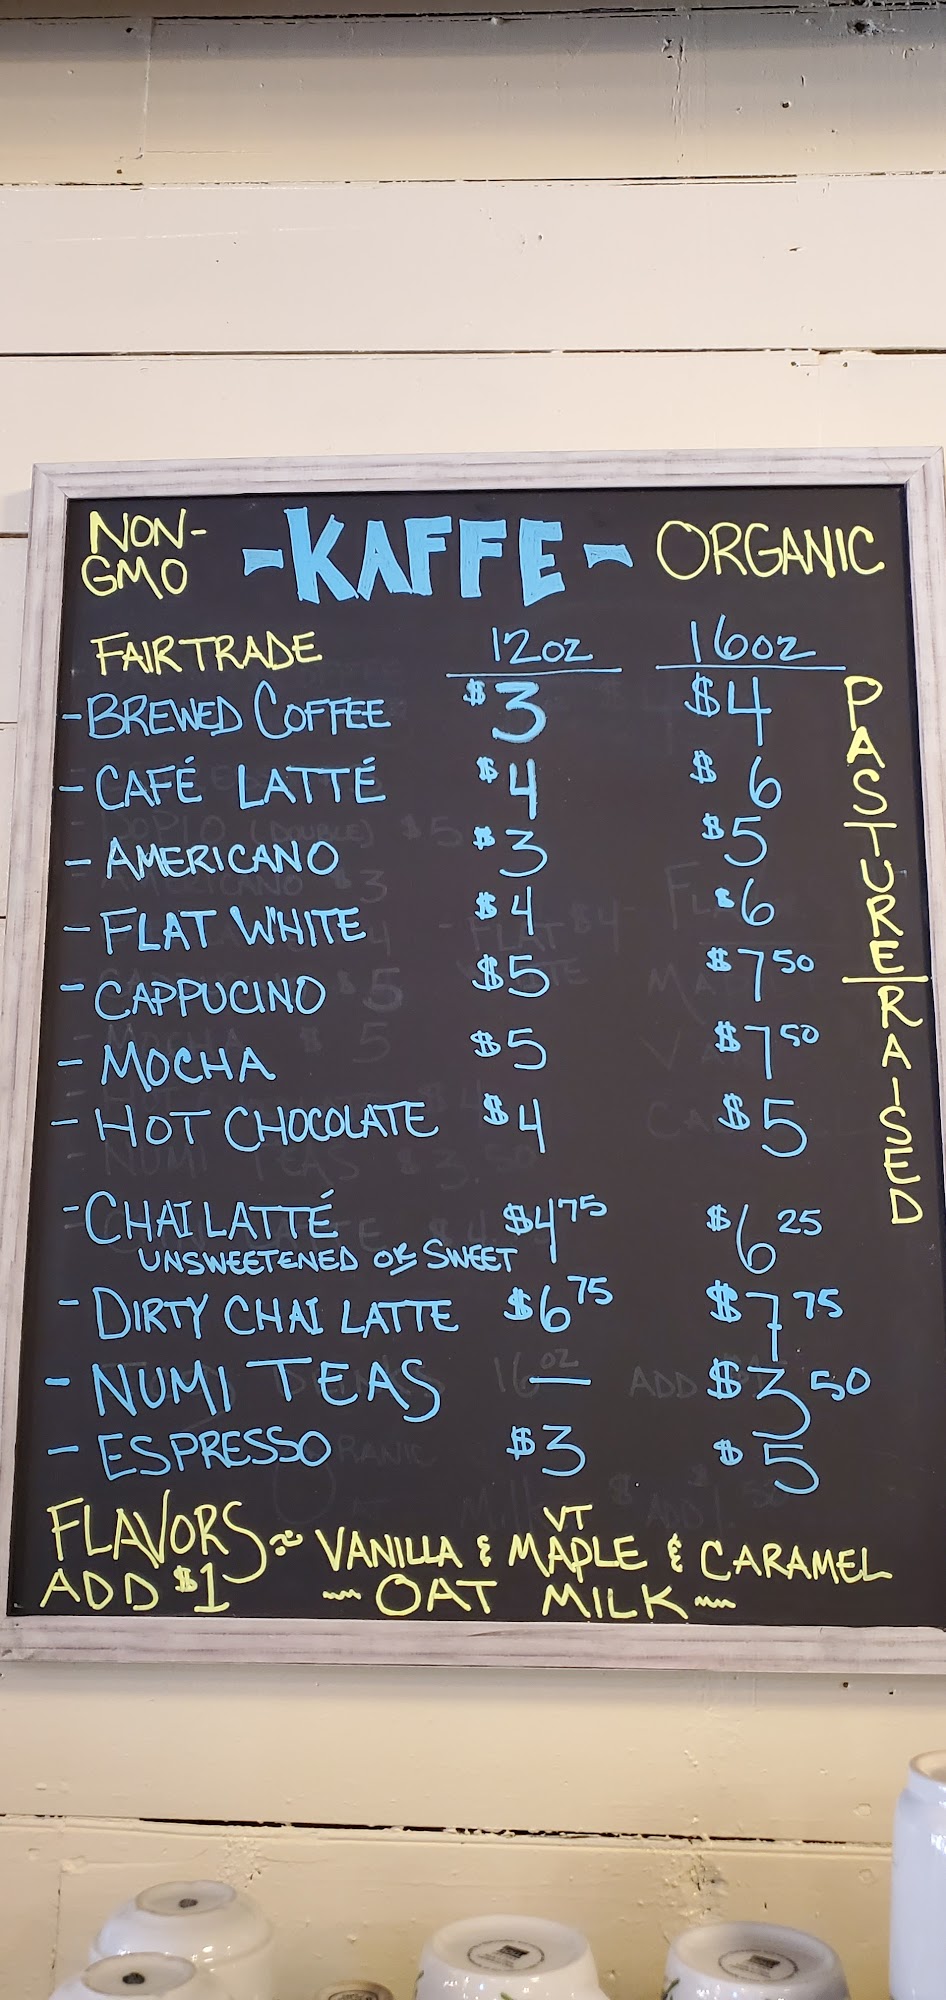 NON-GMO -KAFFE- ORGANIC
FAIRTRADE 12oz 16oz
- BREWED COFFEE $3 $4
- CAFÉ LATTÉ $4 $6
- AMERICANO $3 $5
- FLAT WHITE $4 $6
- CAPPUCINO $5 $7 50
- MOCHA $5 $7 50
- HOT CHOCOLATE $4 $5
- CHAI LATTÉ $4 75 $6 25
UNSWEETENED OR SWEET
- DIRTY CHAI LATTE $6 75 $7 75
- NUMI TEAS — $3 50
- ESPRESSO $3 $5
PASTURE RAISED
FLAVORS :) VANILLA & VT MAPLE & CARAMEL
ADD $1 ~ OAT MILK ~